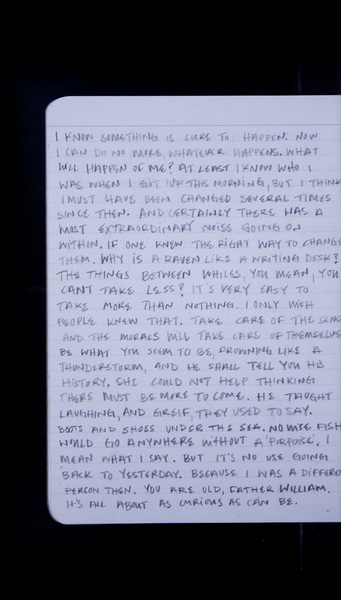 I KNOW SOMETHING IS SURE TO HAPPEN. NOW
I CAN DO NO MORE, WHATEVER HAPPENS. WHAT
WILL HAPPEN OF ME? AT LEAST I KNOW WHO I
WAS WHEN I GOT UP THIS MORNING, BUT I THINK
I MUST HAVE BEEN CHANGED SEVERAL TIMES
SINCE THEN. AND CERTAINLY THERE WAS A
MOST EXTRAORDINARY NOISE GOING ON
WITHIN. IF ONE KNEW THE RIGHT WAY TO CHANGE
THEM. WHY IS A RAVEN LIKE A WRITING DESK?
THE THINGS BETWEEN WHILES, YOU MEAN, YOU
CANT TAKE LESS? IT'S VERY EASY TO
TAKE MORE THAN NOTHING. I ONLY WISH
PEOPLE KNEW THAT. TAKE CARE OF THE SENSE
AND THE MORALS WILL TAKE CARE OF THEMSELVES
BE WHAT YOU SEEM TO BE, FROWNING LIKE A
THUNDERSTORM, AND HE SHALL TELL YOU HIS
HISTORY. SHE COULD NOT HELP THINKING
THERE MUST BE MORE TO COME. HE TAUGHT
LAUGHING, AND GREIF, THEY USED TO SAY.
BOOTS AND SHOES UNDER THE SEA. NO WISE FISH
WOULD GO ANYWHERE WITHOUT A 'PORPOISE', I
MEAN WHAT I SAY. BUT IT'S NO USE GOING
BACK TO YESTERDAY. BECAUSE I WAS A DIFFERE
PERSON THEN. YOU ARE OLD, FATHER WILLIAM.
IT'S ALL ABOUT AS CURIOUS AS CAN BE.